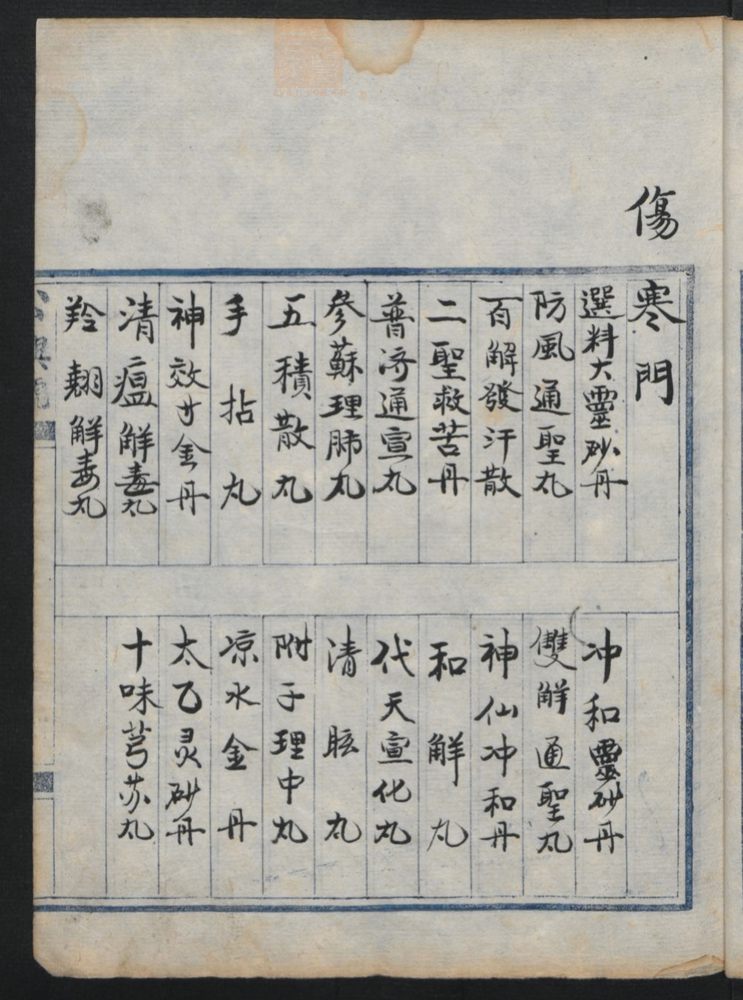 傷
寒門
選料大靈砂丹
防風通聖丸
百解發汗散
二聖救苦丹
普济通宣丸
參蘇理肺丸
五積散丸
手拈丸
神效寸金丹
清瘟解毒丸
羚翹解毒丸
冲和靈砂丹
雙解通聖丸
神仙冲和丹
和解丸
代天宣化丸
清眩丸
附子理中丸
凉水金丹
太乙灵砂丹
十味芎苏丸